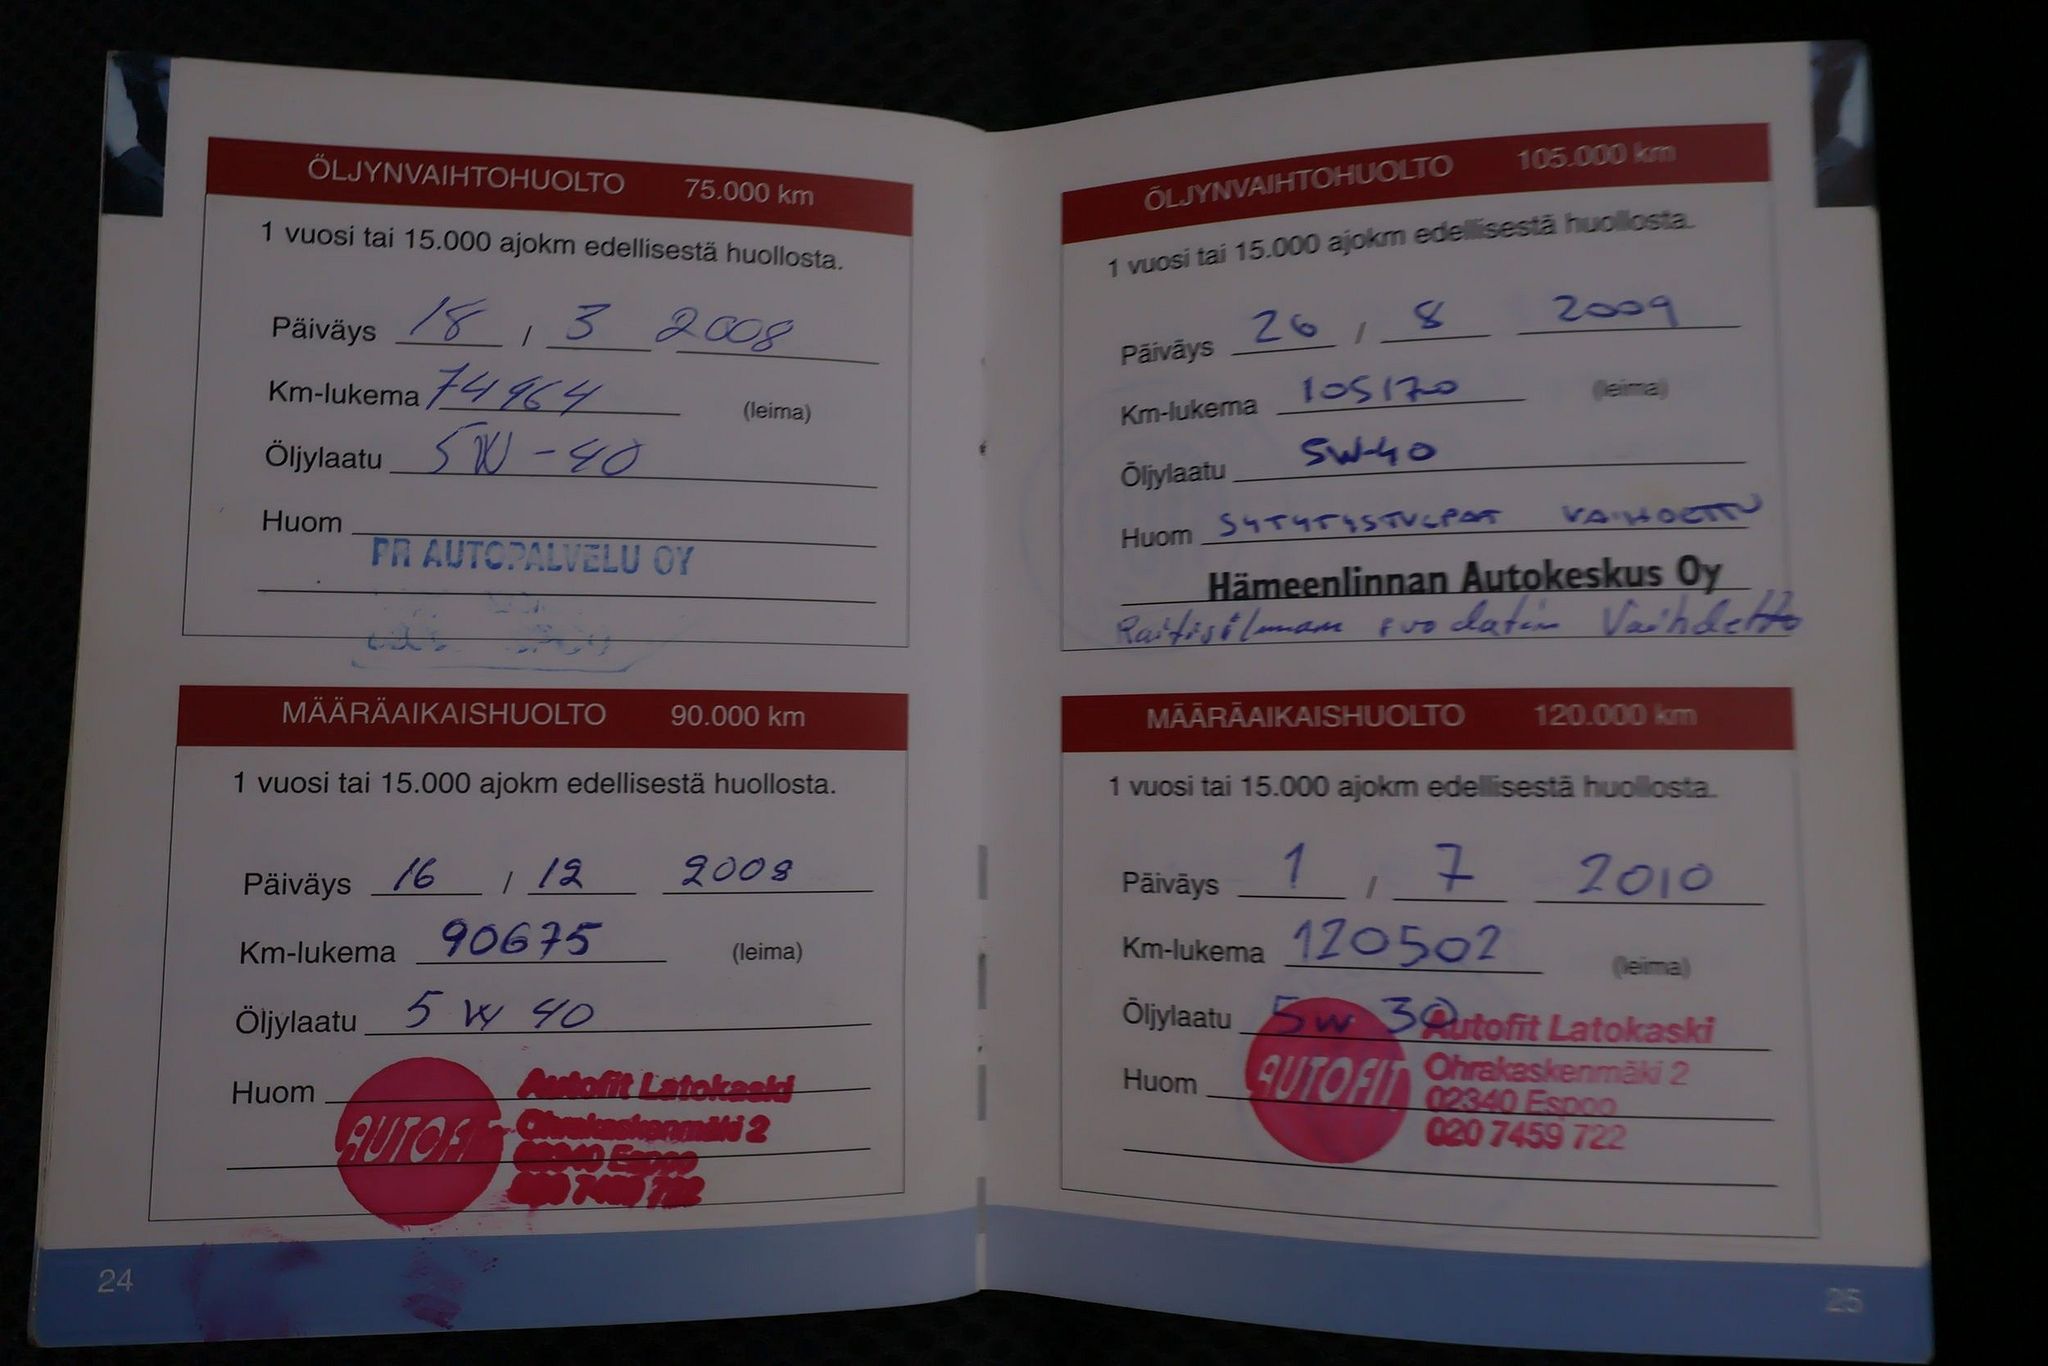 ÖLJYNVAIHTOHUOLTO 75.000 km
1 vuosi tai 15.000 ajokm edellisestä huollosta.
Päiväys 18 / 3 2008
Km-lukema 74964 (leima)
Öljylaatu 5W-40
Huom
PR AUTOPALVELU OY
MÄÄRÄAIKAISHUOLTO 90.000 km
1 vuosi tai 15.000 ajokm edellisestä huollosta.
Päiväys 16 / 12 2008
Km-lukema 90675 (leima)
Öljylaatu 5 W 40
Huom
AUTOFIT Autofit Latokaski
Ohrakaskenmäki 2
02340 Espoo
020 7459 722
24
ÖLJYNVAIHTOHUOLTO 105.000 km
1 vuosi tai 15.000 ajokm edellisestä huollosta.
Päiväys 26 / 8 2009
Km-lukema 105170 (leima)
Öljylaatu 5W-40
Huom SYTYTYSTULPAT VAIHDETTU
Hämeenlinnan Autokeskus Oy
Raitisilmam suodatin Vaihdettu
MÄÄRÄAIKAISHUOLTO 120.000 km
1 vuosi tai 15.000 ajokm edellisestä huollosta.
Päiväys 1 / 7 2010
Km-lukema 120502 (leima)
Öljylaatu 5W 30
Huom
AUTOFIT Autofit Latokaski
Ohrakaskenmäki 2
02340 Espoo
020 7459 722
25